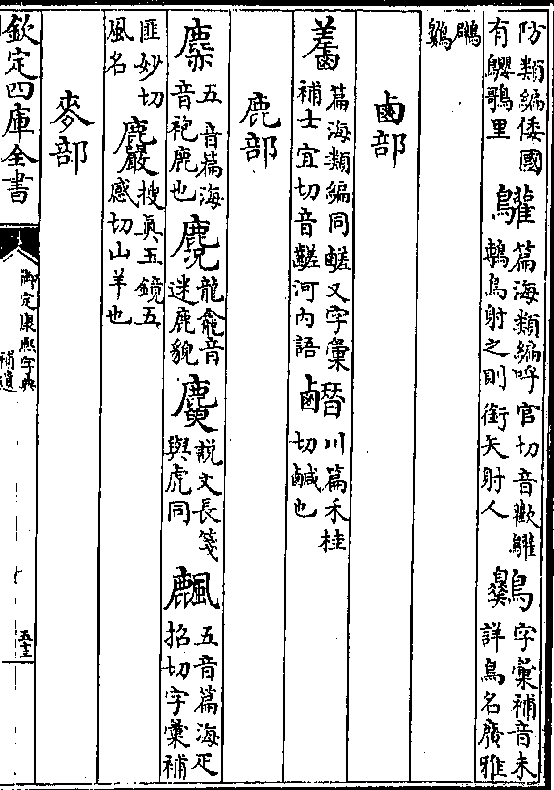 防類編倭國
有鸚
里
篇海類編呼官切音歡鸛
鷒鳥射之則銜矢射人
字彙補音未
詳鳥名廣雅
鹵部
篇海類編同鹺又字彙
補士宜切音鹺河內語
川篇禾桂
切鹹也
鹿部
五音篇海
音袍鹿也
龍龕音
迷鹿貌
説文長箋
與虎同
五音篇海疋
招切字彙補
匪妙切
風名
搜真玉鏡五
感切山羊也
麥部
欽定四庫全書
御定康熙字典
補遺